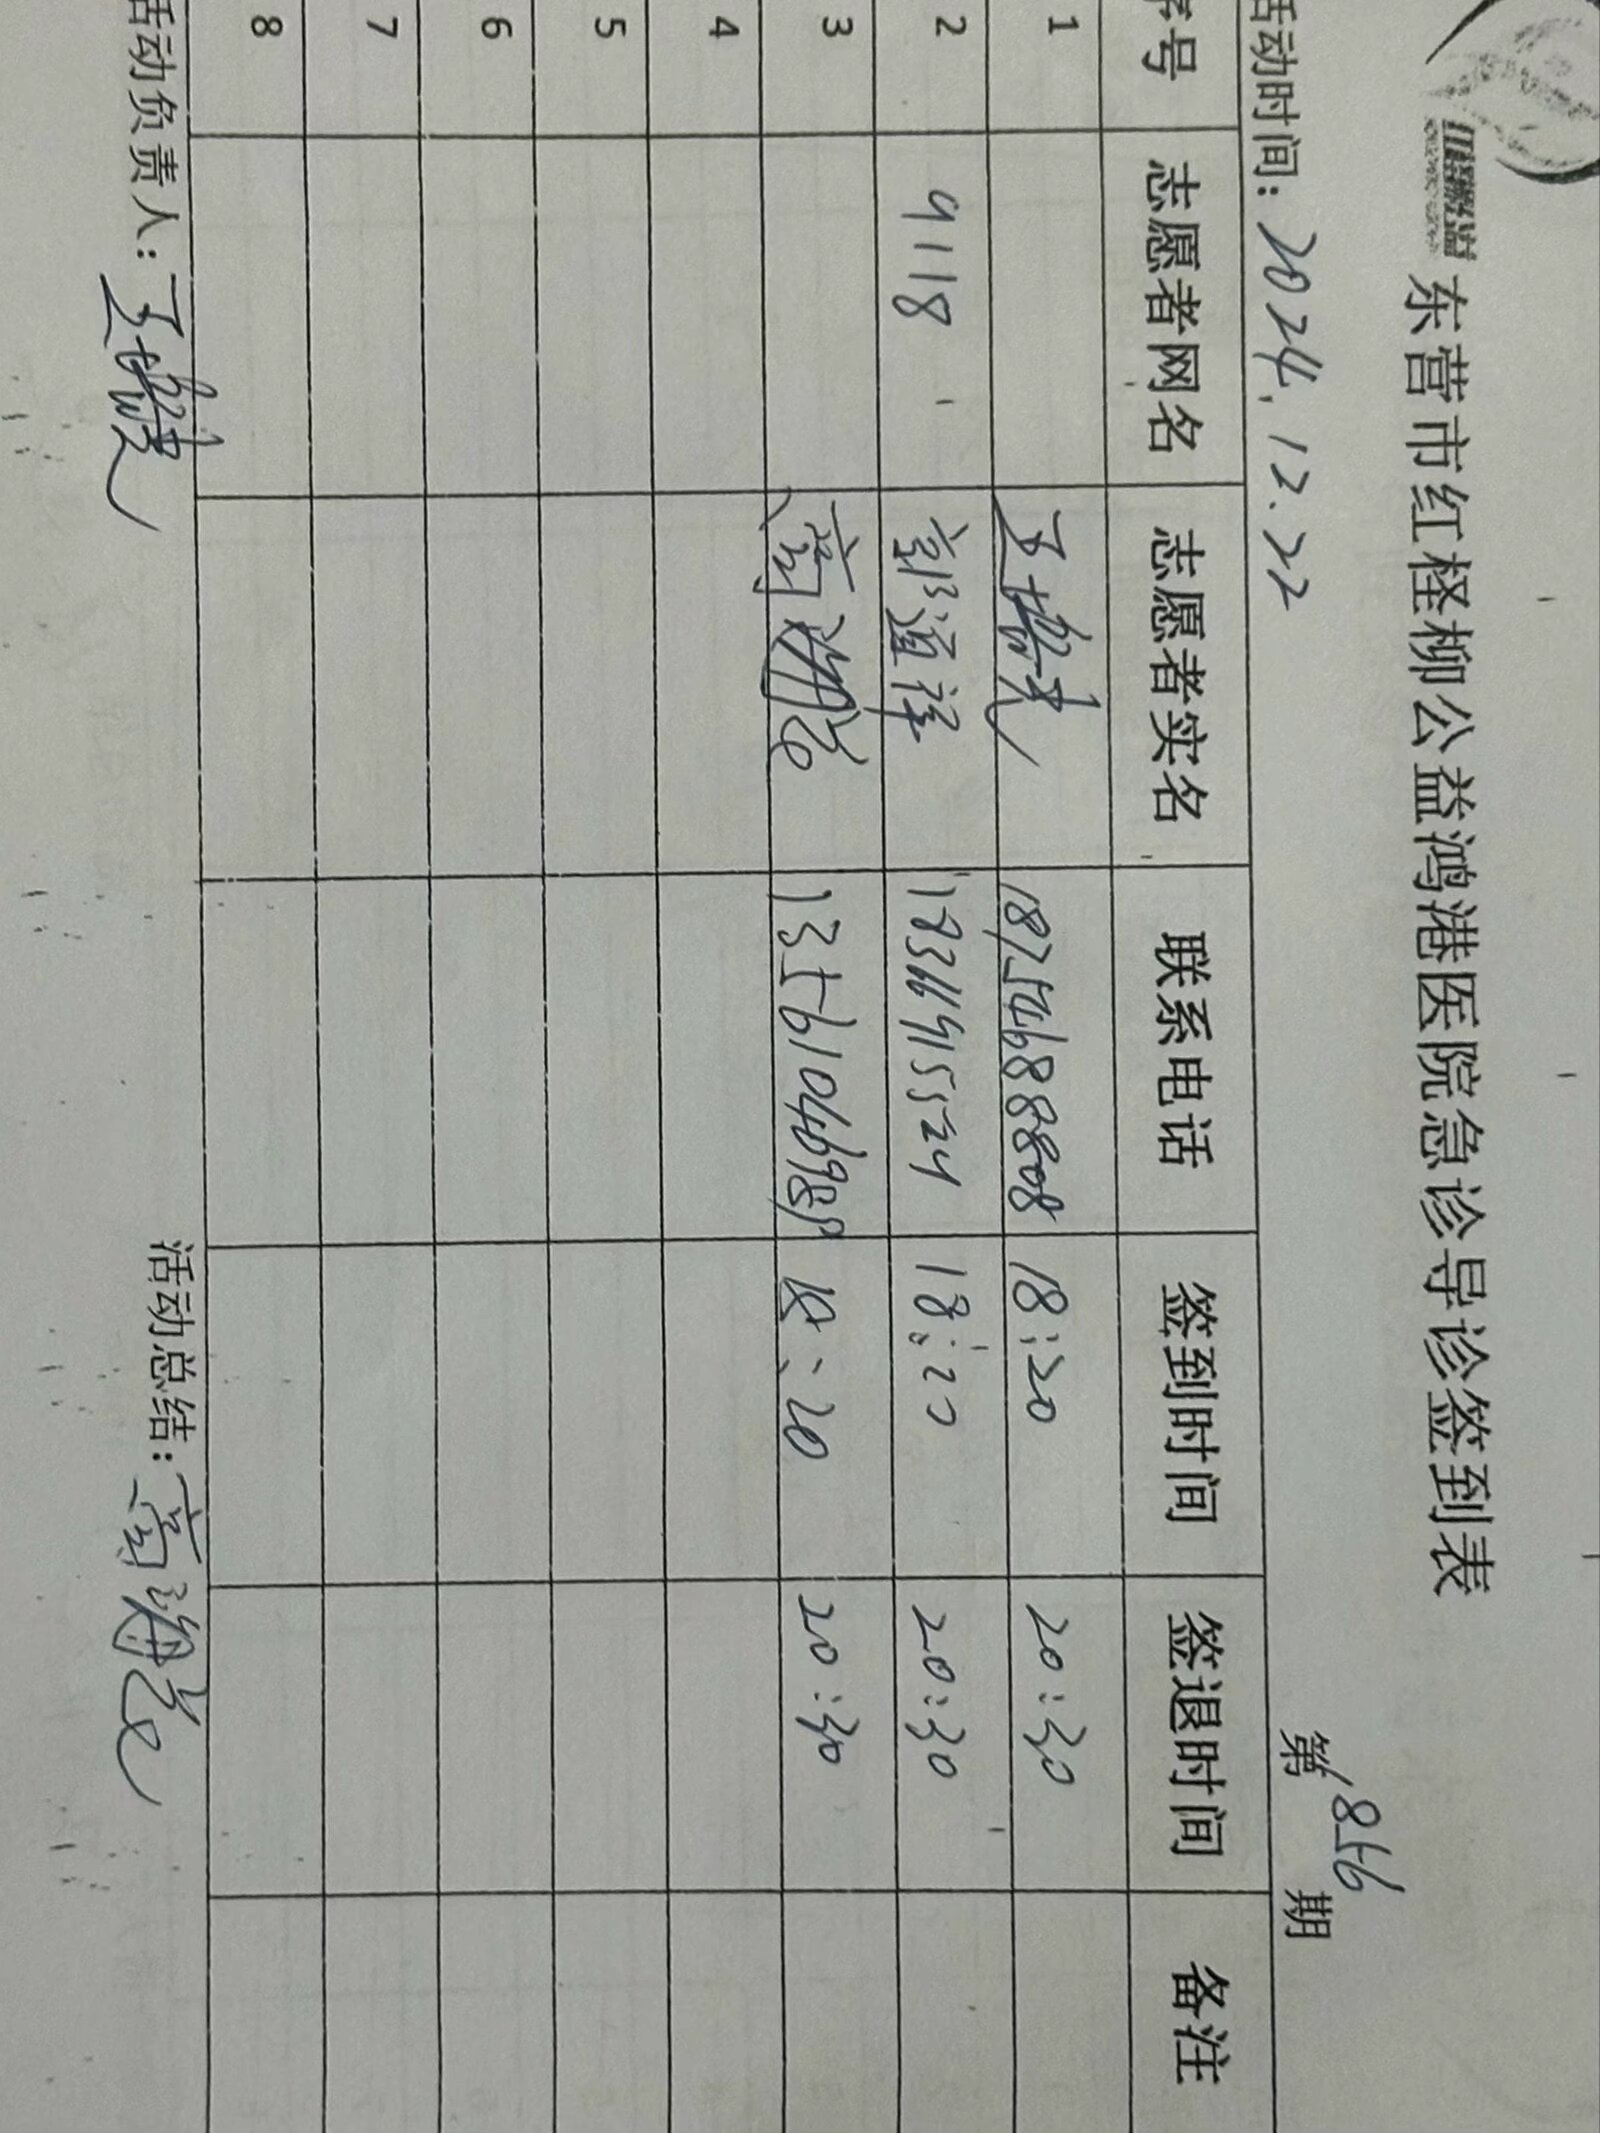 东营市红柽柳公益鸿港医院急诊导诊签到表
活动时间：2024.12.22 第1856期
序号 志愿者网名 志愿者实名 联系电话 签到时间 签退时间 备注
1 18254688808 18:20 20:30
2 9118 郭道祥 18366915524 18:20 20:30
3 高海花 13561046985 18:20 20:30
4
5
6
7
8
活动负责人： 活动总结：高海花